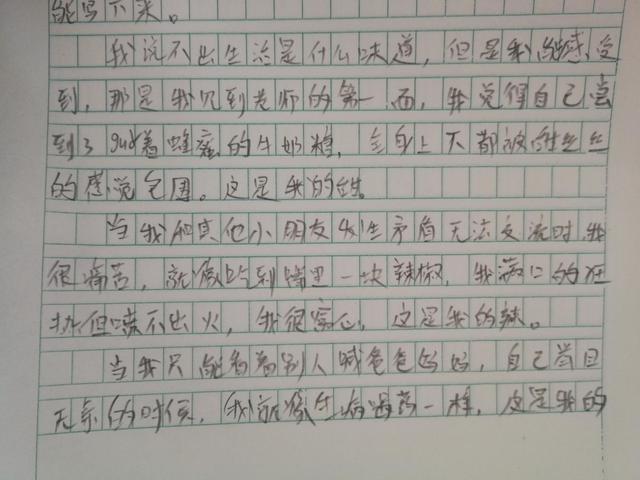 能写下来。
我说不出生活是什么味道，但是我能感受
到，那是我见到老师的第一面，我觉得自己尝
到了 着蜂蜜的牛奶糖，全身上下都被甜丝丝
的感觉包围。这是我的甜。
当我和其他小朋友发生矛盾无法交流时，我
很痛苦，就像吃到嘴里一块辣椒，我满口的狂
热但喷不出火，我很 心，这是我的辣。
当我只能看着别人喊爸爸妈妈，自己
无亲的时候，我就像生病喝药一样，这是我的